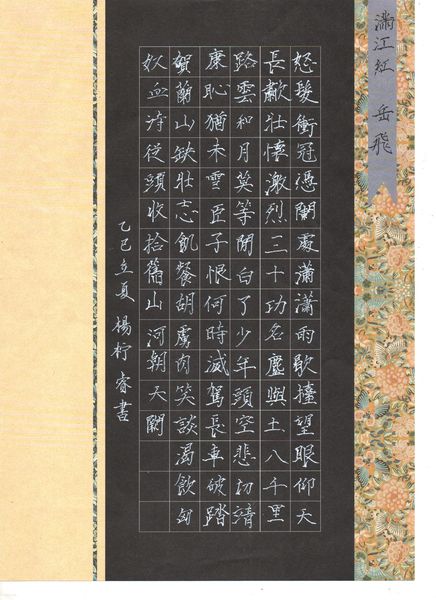 滿江紅 岳飛
怒髮衝冠憑闌處瀟瀟雨歇擡望眼仰天
長歗壯懷激烈三十功名塵與土八千里
路雲和月莫等閒白了少年頭空悲切靖
康恥猶未雪臣子恨何時滅駕長車破踏
賀蘭山缺壯志飢餐胡虜肉笑談渴飲匈
奴血待從頭收拾舊山河朝天闕
乙巳立夏 楊睿書